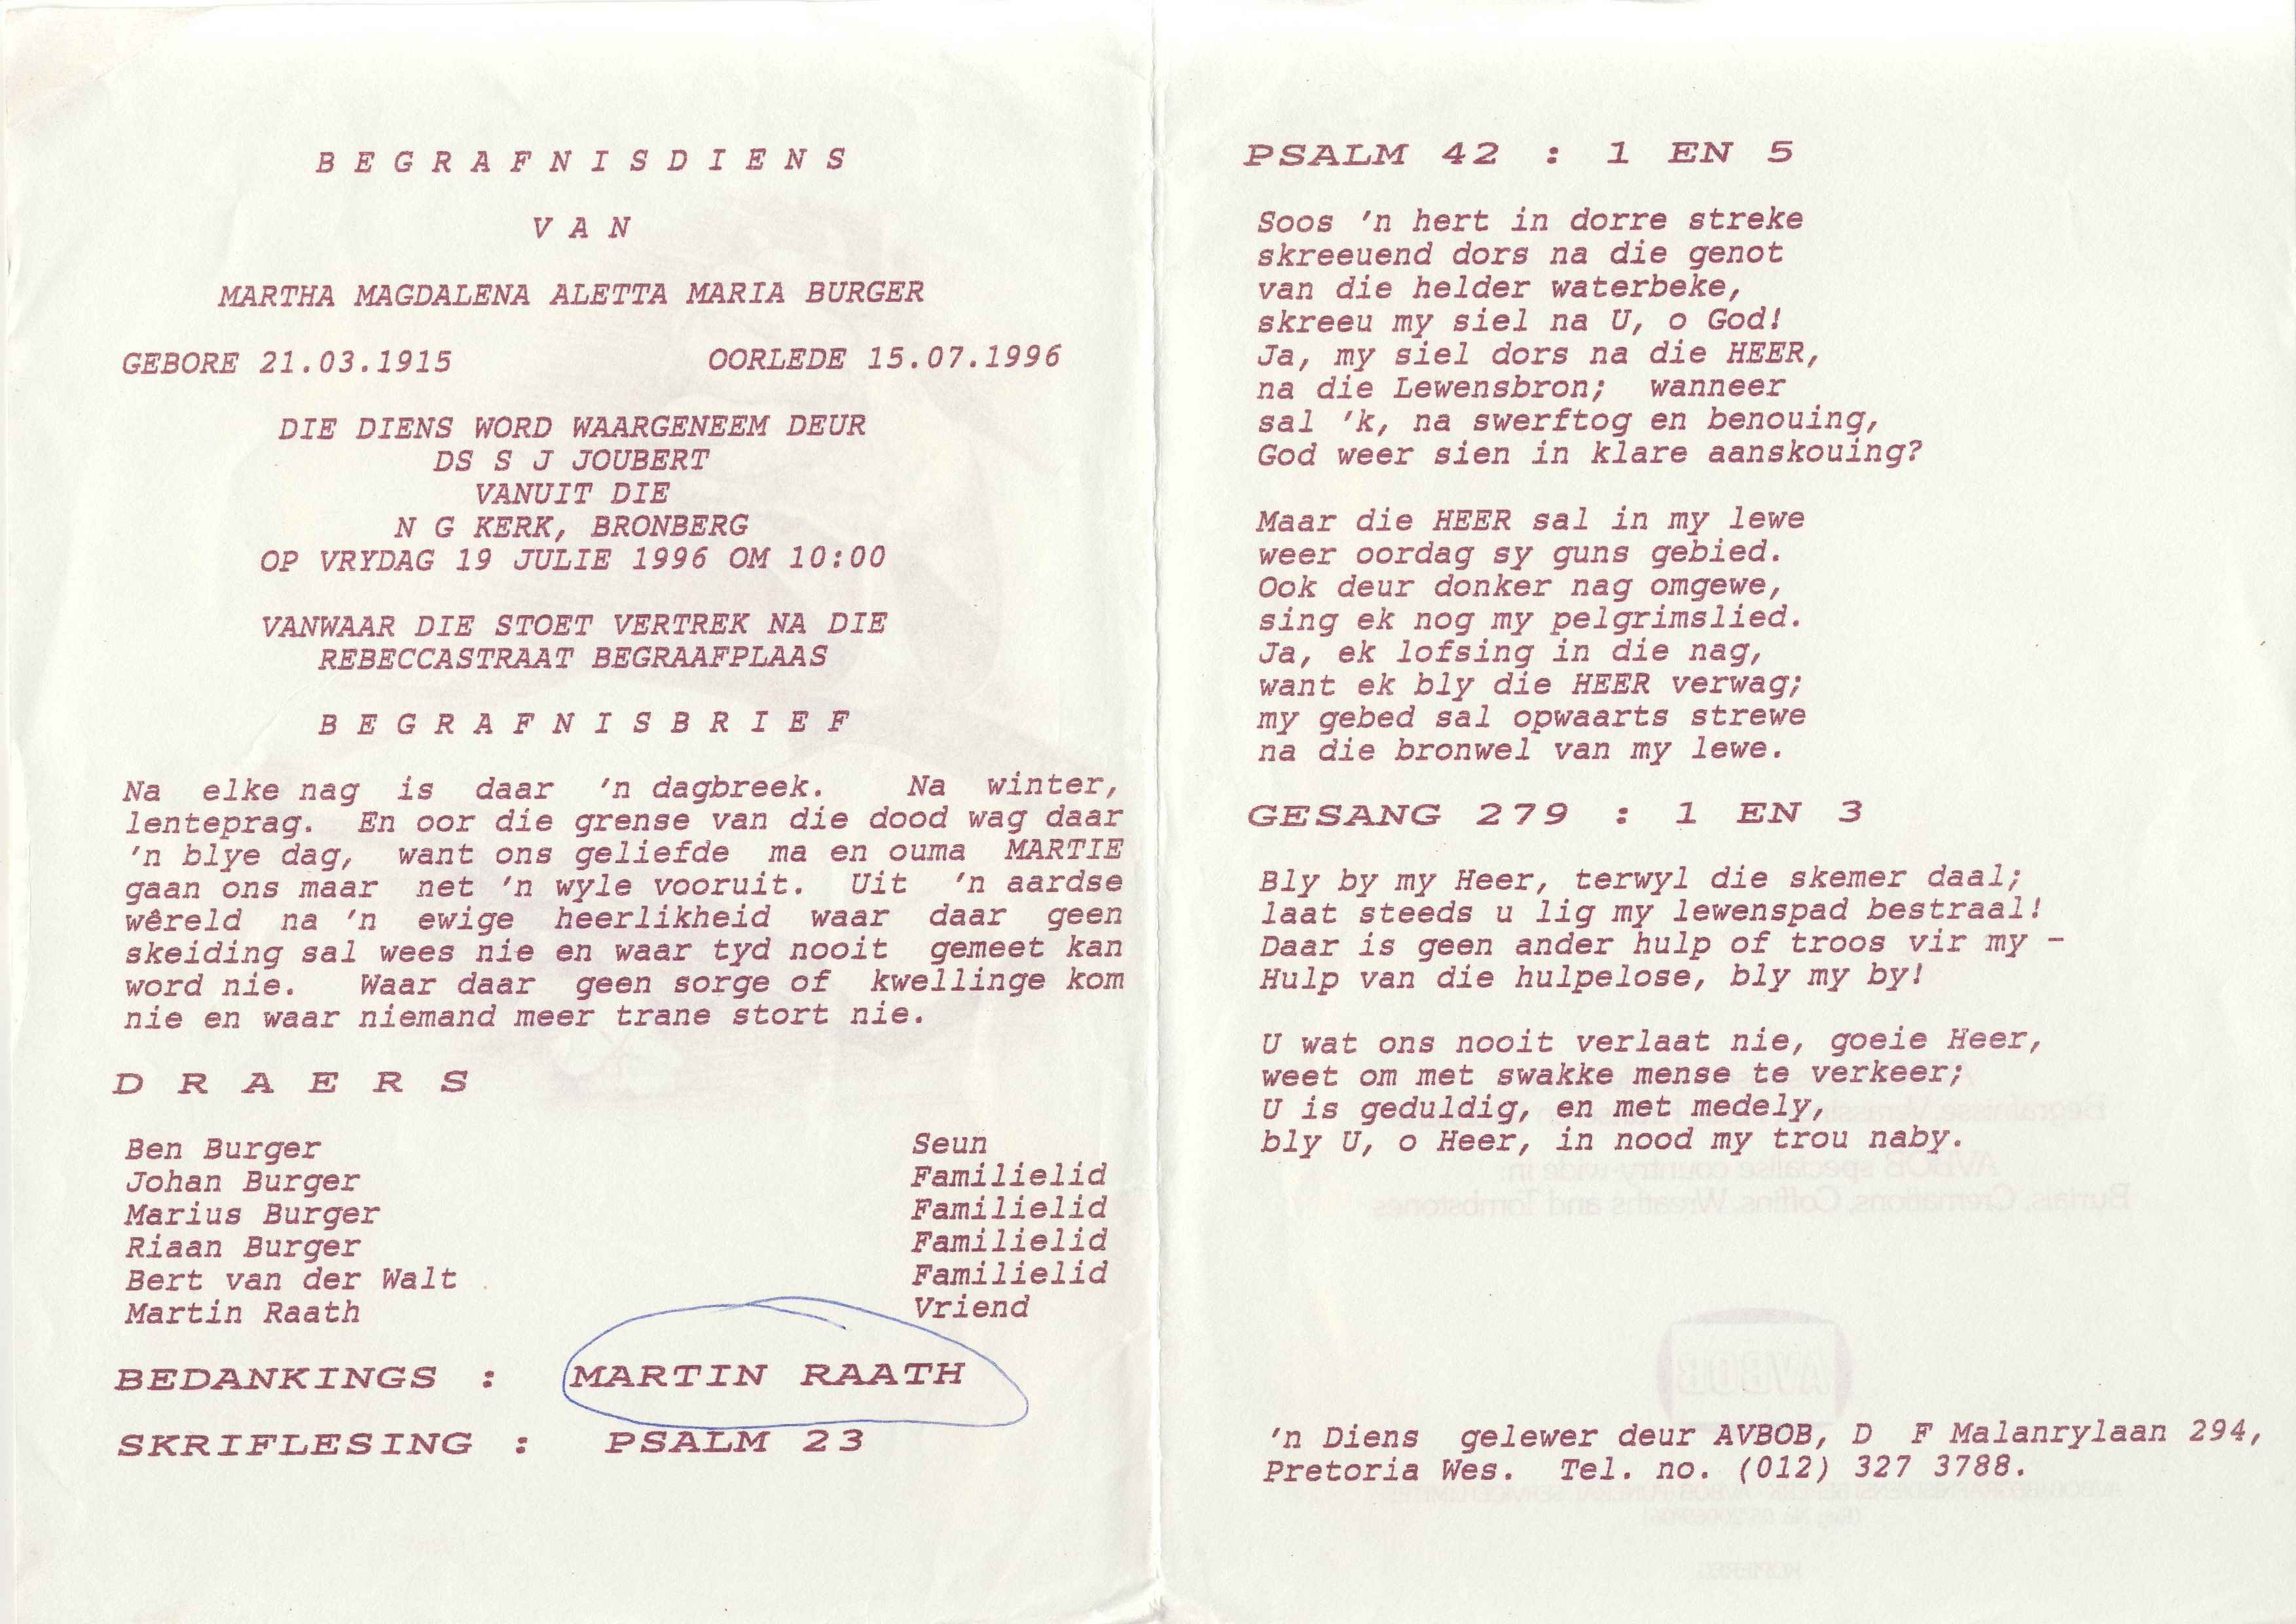 BEGRAFNISDIENS
VAN
MARTHA MAGDALENA ALETTA MARIA BURGER
GEBORE 21.03.1915 OORLEDE 15.07.1996
DIE DIENS WORD WAARGENEEM DEUR
DS S J JOUBERT
VANUIT DIE
N G KERK, BRONBERG
OP VRYDAG 19 JULIE 1996 OM 10:00
VANWAAR DIE STOET VERTREK NA DIE
REBECCASTRAAT BEGRAAFPLAAS
BEGRAFNISBRIEF
Na elke nag is daar 'n dagbreek. Na winter,
lenteprag. En oor die grense van die dood wag daar
'n blye dag, want ons geliefde ma en ouma MARTIE
gaan ons maar net 'n wyle vooruit. Uit 'n aardse
wêreld na 'n ewige heerlikheid waar daar geen
skeiding sal wees nie en waar tyd nooit gemeet kan
word nie. Waar daar geen sorge of kwellinge kom
nie en waar niemand meer trane stort nie.
DRAERS
Ben Burger Seun
Johan Burger Familielid
Marius Burger Familielid
Riaan Burger Familielid
Bert van der Walt Familielid
Martin Raath Vriend
BEDANKINGS : MARTIN RAATH
SKRIFLESING : PSALM 23
PSALM 42 : 1 EN 5
Soos 'n hert in dorre streke
skreeuend dors na die genot
van die helder waterbeke,
skreeu my siel na U, o God!
Ja, my siel dors na die HEER,
na die Lewensbron; wanneer
sal 'k, na swerftog en benouing,
God weer sien in klare aanskouing?
Maar die HEER sal in my lewe
weer oordag sy guns gebied.
Ook deur donker nag omgewe,
sing ek nog my pelgrimslied.
Ja, ek lofsing in die nag,
want ek bly die HEER verwag;
my gebed sal opwaarts strewe
na die bronwel van my lewe.
GESANG 279 : 1 EN 3
Bly by my Heer, terwyl die skemer daal;
laat steeds u lig my lewenspad bestraal!
Daar is geen ander hulp of troos vir my -
Hulp van die hulpelose, bly my by!
U wat ons nooit verlaat nie, goeie Heer,
weet om met swakke mense te verkeer;
U is geduldig, en met medely,
bly U, o Heer, in nood my trou naby.
AVBOB specialise countrywide in:
Burials, Cremations, Coffins, Wreaths and Tombstones
AVBOB
'n Diens gelewer deur AVBOB, D F Malanrylaan 294,
Pretoria Wes. Tel. no. (012) 327 3788.